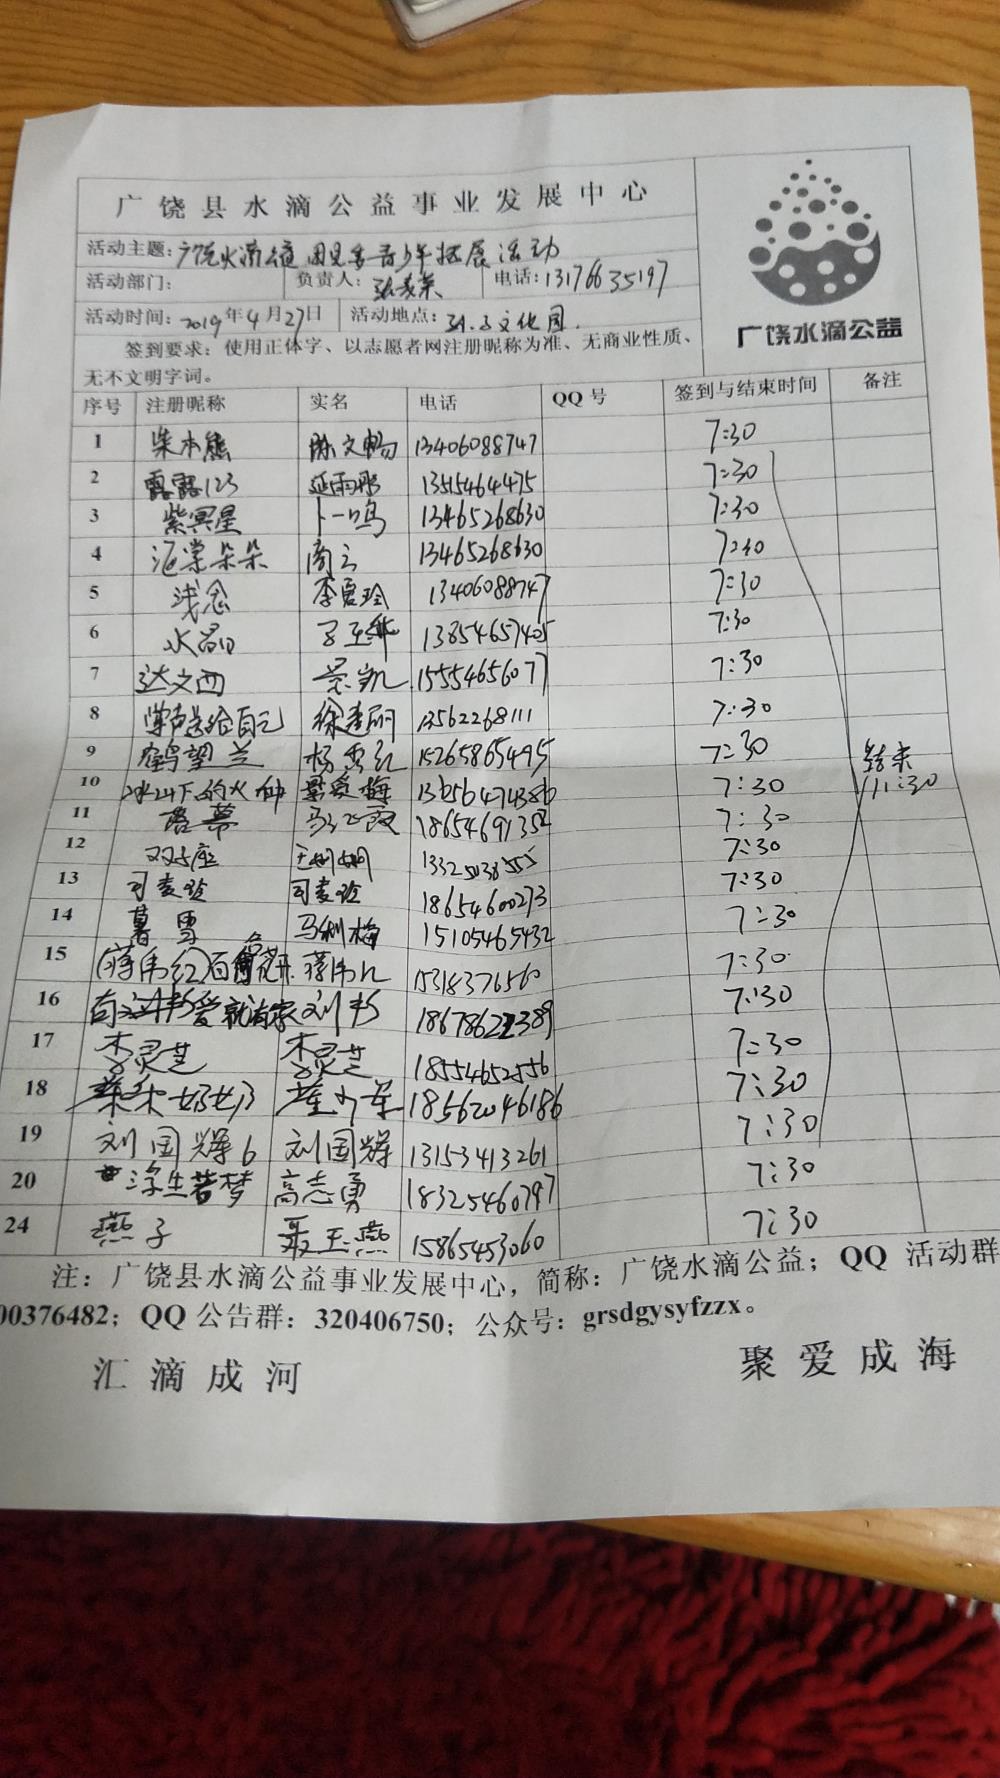 广饶县水滴公益事业发展中心
活动主题：广饶水滴公益 青少年拓展活动
活动部门： 负责人： 电话：13176635197
活动时间：2019年4月27日 活动地点：孙子文化园.
签到要求：使用正体字、以志愿者网注册昵称为准、无商业性质、
无不文明字词。
广饶水滴公益
序号 注册昵称 实名 电话 QQ号 签到与结束时间 备注
1 柴本熊 陈文畅 13406088747 7:30
2 露露123 延雨彤 13515464475 7:30
3 紫冥星 卜一鸣 13465268630 7:30
4 海棠朵朵 商云 13465268630 7:30
5 浅念 李爱玲 13406088747 7:30
6 13854657405 7:30
7 达文西 15554656077 7:30
8 掌声送给自己 13562268111 7:30
9 鹤望兰 杨秀红 15265865495 7:30 结束
10 冰山下的火种 13656474386 7:30 11:30
11 落幕 18654691352 7:30
12 双子座 王娟娟 13325038555 7:30
13 司麦玲 司麦玲 18654600273 7:30
14 暮雪 马利梅 15105465432 7:30
15 (蒋伟红)百合花开 蒋伟红 15318376560 7:30
16 有爱就有家 刘书 18678622389 7:30
17 李灵芝 李灵芝 18554652556 7:30
18 18562046186 7:30
19 刘国辉6 刘国辉 13153413261 7:30
20 浮生若梦 高志勇 18325460797 7:30
24 燕子 聂玉燕 15865453060 7:30
注：广饶县水滴公益事业发展中心，简称：广饶水滴公益；QQ 活动群
00376482；QQ 公告群：320406750；公众号：grsdgysyfzzx。
汇滴成河 聚爱成海